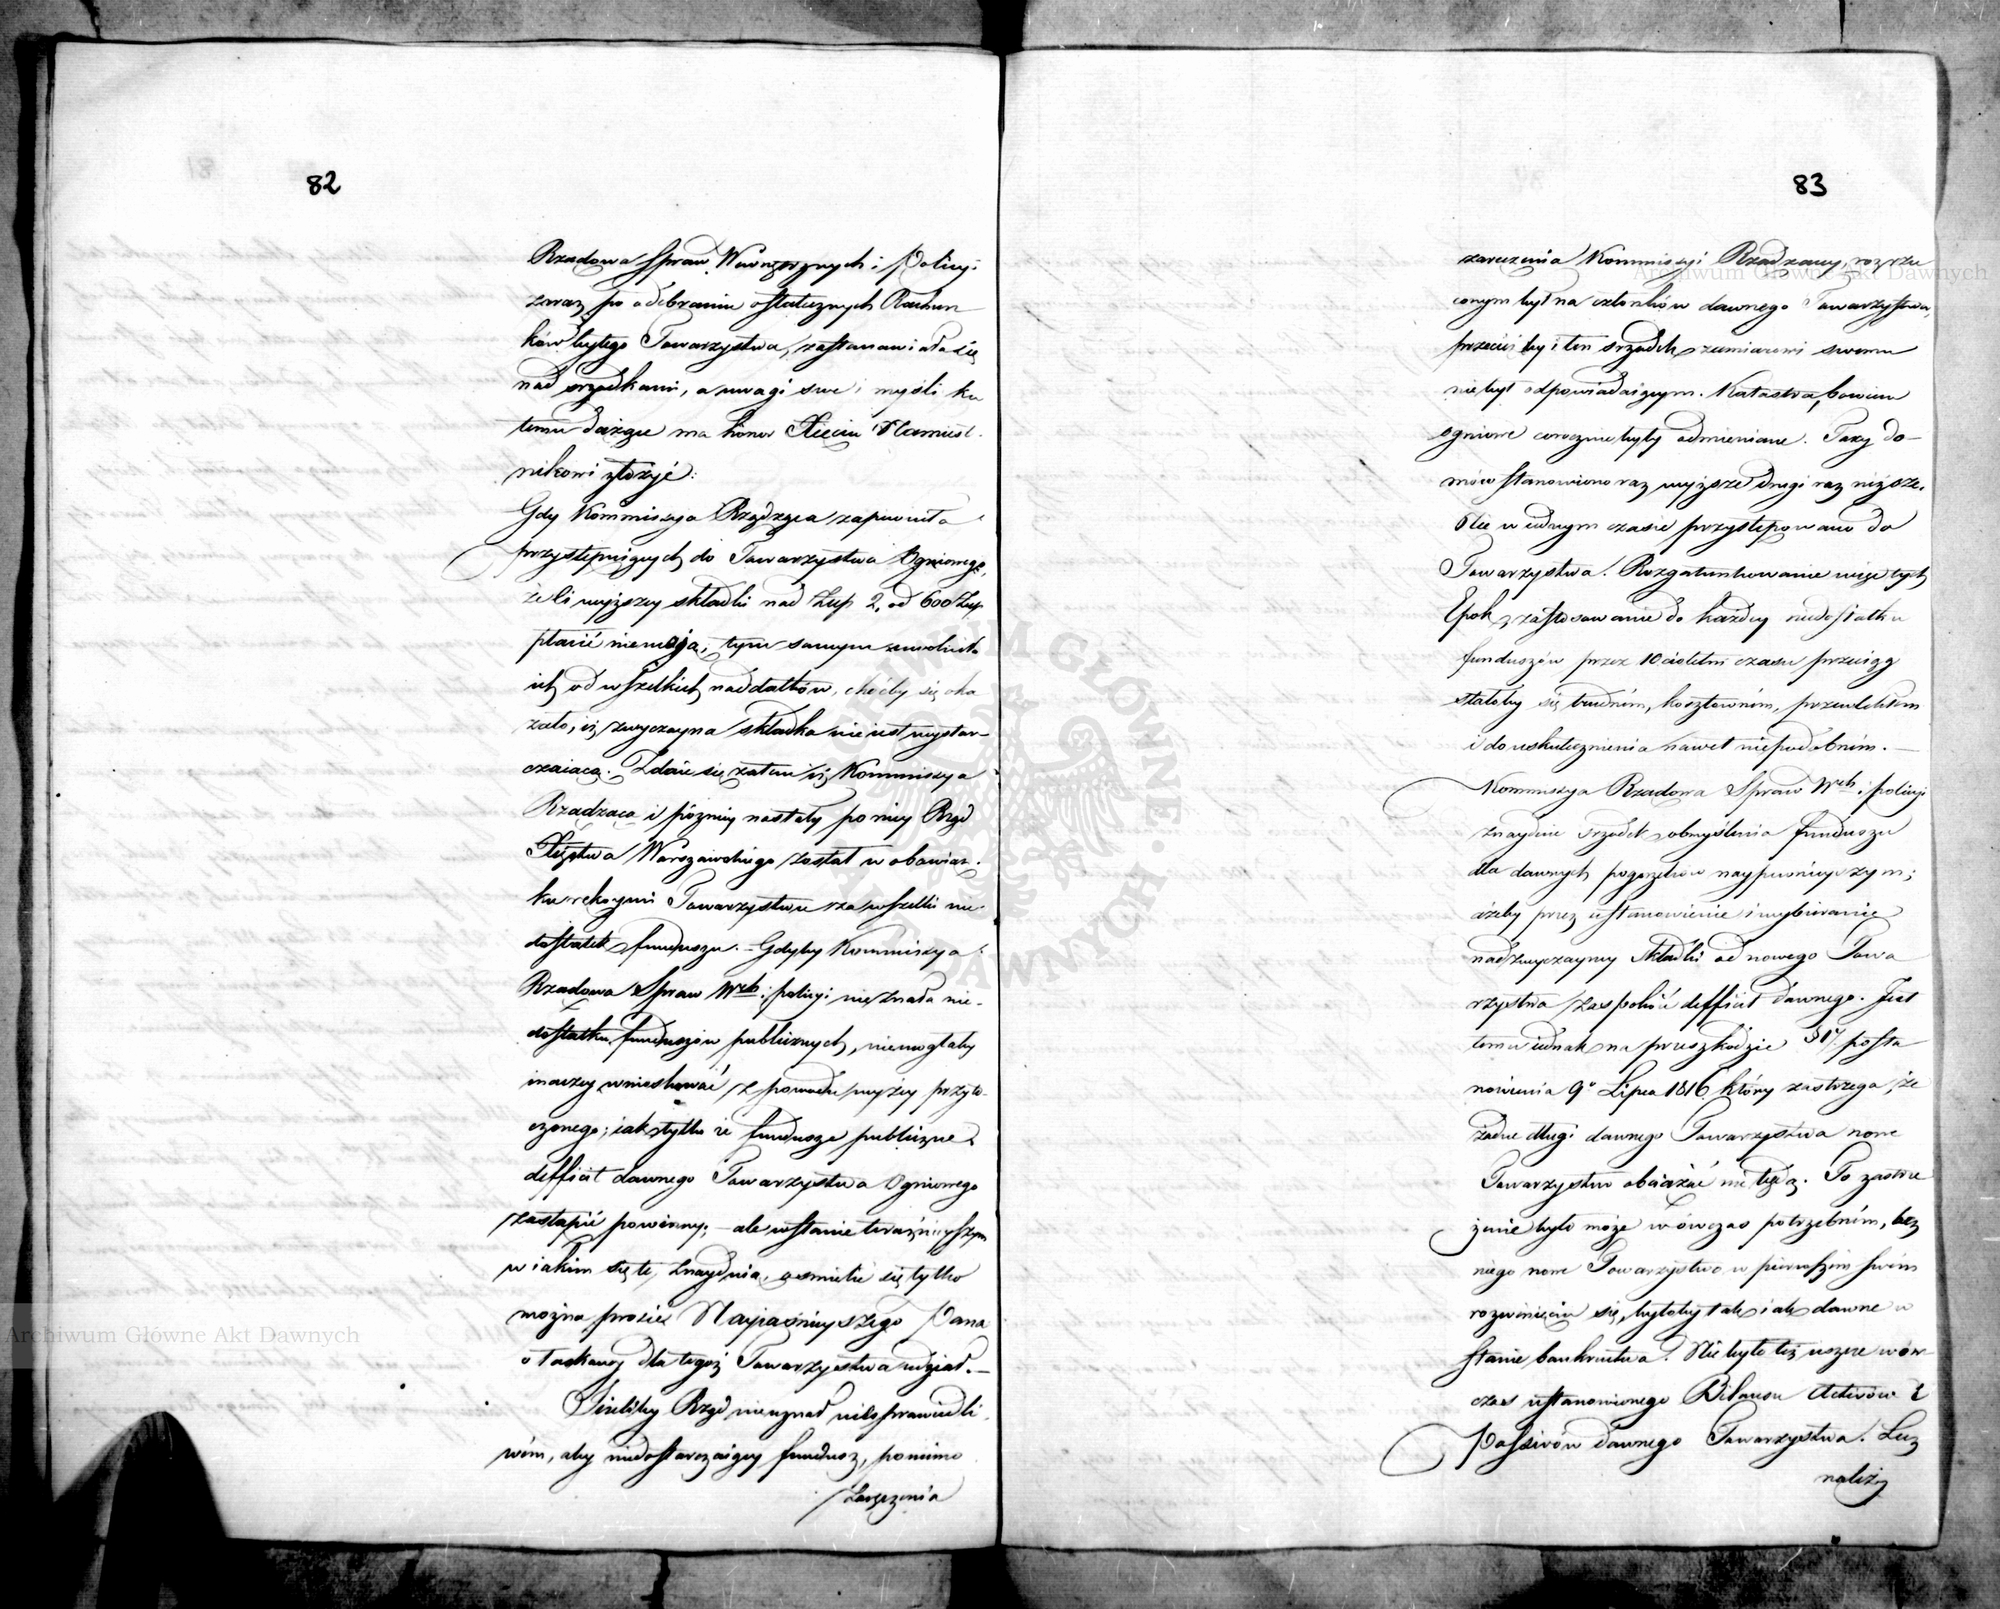 82
Rządowa Spraw Wewnętrznych i Policyi
zaraz po odebraniu ostatecznych Rachun
ków byłego Towarzystwa, zastanawiała się
nad srzodkami, a uwagi swe i myśli ku
temu dążące ma honor Xięciu Namiest-
nikowi złożyć:
Gdy Kommissya Rządząca zapewniła
przystępuiących do Towarzystwa Ogniowego,
że li wyższey składki nad Złup 2, od 600 Złup
płacić niemaią; tym samym uwolniła
ich od wszelkich naddatków, choćby się oka
zało, iż zwyczayna składka nie iest wystar-
czaiącą. Zdaie się zatem iż Kommissya
Rządząca i późniey nastały po niey Rząd
Xięstwa Warszawskiego został w obowiąz-
ku rekoymi Towarzystwu za wszelki nie-
dostatek funduszu. - Gdyby Kommissya
Rządowa Spraw Wch i policyi nie znała nie-
dostatku funduszów publicznych, niemogłaby
inaczey wnioskować z powodu wyżey przyto-
czonego; iak tylko że fundusze publiczne
defficit dawnego Towarzystwa Ogniowego
zastąpić powinny; - ale w stanie teraźnieyszym
w iakim się te znayduią, ośmielić się tylko
można prosić Nayiaśnieyszego Pana
o łaskawy dla tegoż Towarzystwa udział. -
Jeżeliby Rząd nieuznał niesprawiedli
wém, aby niedostarczaiący fundusz, pomimo
zaręczenia
83
zaręczenia Kommissyi Rządzący, rozrzu
conym był na członków dawnego Towarzystwa,
przecież by i ten srzodek zamiarowi swemu
nie był odpowiadaiącym. Katastra bowiem
ogniowe corocznie były odmieniane. Taxy do-
mów stanowiono raz wyższe drugi raz niższe.
Nie w iednym czasie przystępowano do
Towarzystwa. Rozgatunkowanie więc tych
Epok, zastosowanie do każdey niedostatku
funduszów przez 10cioletni czasu przeciąg
stałoby się trudném, kosztowném, przewlekłém
i do uskutecznienia nawet niepodobném. -
Kommissya Rządowa Spraw Wch i policyi
znayduie srzodek obmyślenia funduszu
dla dawnych pogorzelców naypewnieyszym;
ażeby przez ustanowienie i wybieranie
nadzwyczayney składki od nowego Towa
rzystwa zaspokoić defficit dawnego. Jest
temu iednak na przeszkodzie § 17. posta
nowienia 9o Lipca 1816 który zastrzega, że
żadne długi dawnego Towarzystwa nowe
Towarzystwo obciążać nie będą. To zastrze
żenie było może wówczas potrzebném, bez
niego nowe Towarzystwo w pierwszém swém
rozwinięciu się, byłoby tak iak dawne w
stanie bankructwa. Nie było też ieszcze wów
czas ustanowionego Bilansu Activów i
Passivów dawnego Towarzystwa. Lecz
należy
Archiwum Główne Akt Dawnych
Archiwum Główne Akt Dawnych